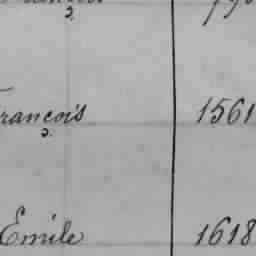 rancois 1561
Emile 1618